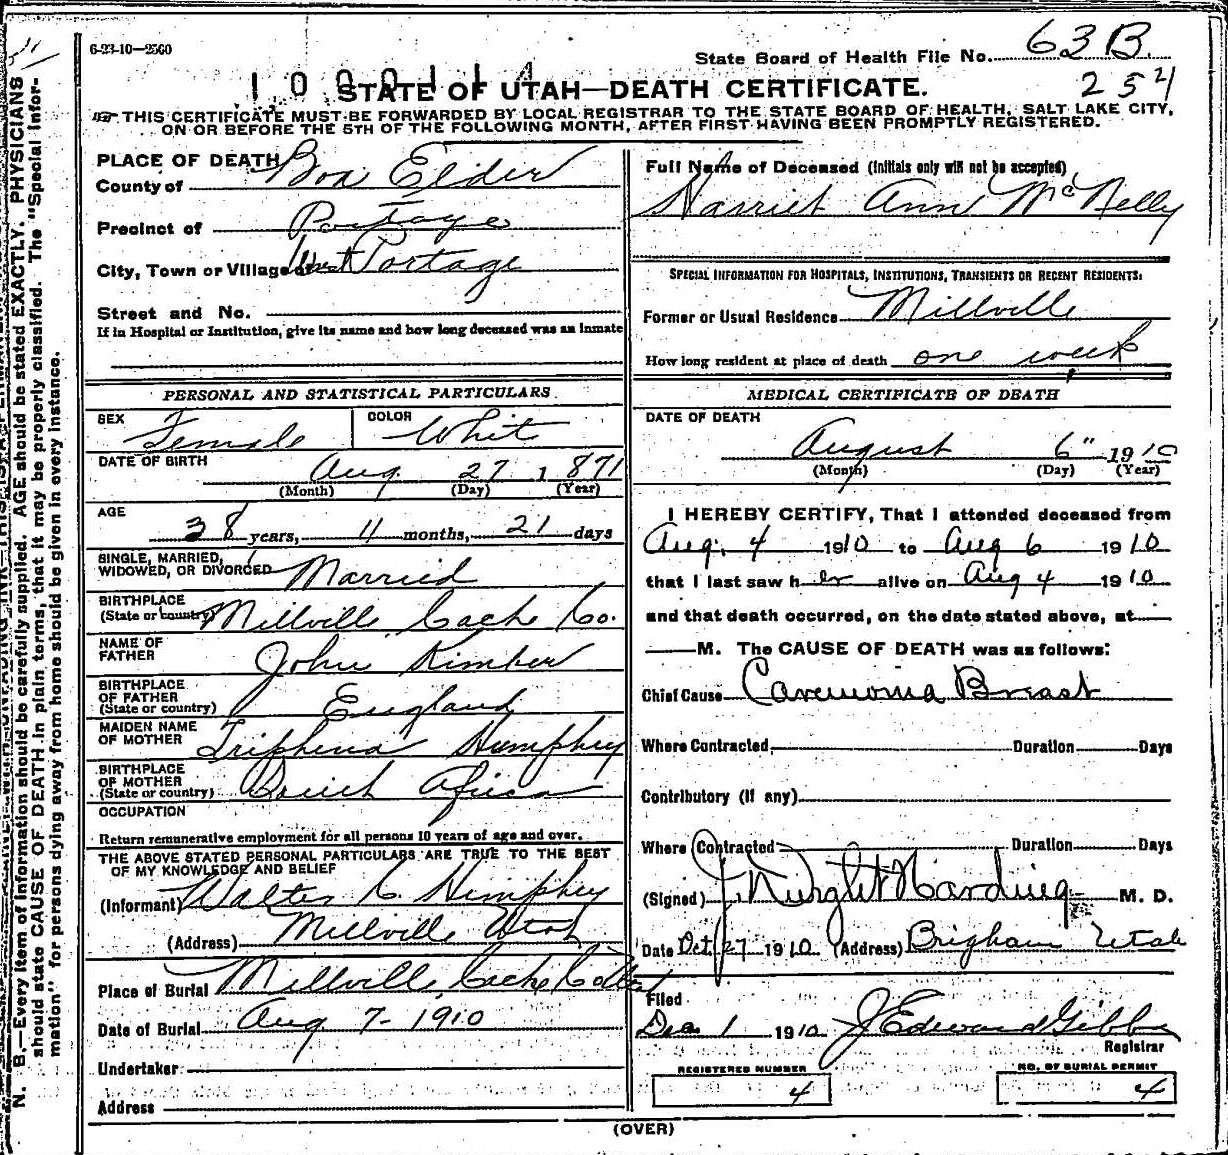 6-23-10—2500
State Board of Health File No. 63 B.
254
1000114
STATE OF UTAH—DEATH CERTIFICATE.
THIS CERTIFICATE MUST BE FORWARDED BY LOCAL REGISTRAR TO THE STATE BOARD OF HEALTH, SALT LAKE CITY,
ON OR BEFORE THE 5TH OF THE FOLLOWING MONTH, AFTER FIRST HAVING BEEN PROMPTLY REGISTERED.
PLACE OF DEATH
County of Box Elder
Precinct of Portage
City, Town or Village of West Portage
Street and No.
If in Hospital or Institution, give its name and how long deceased was an inmate
PERSONAL AND STATISTICAL PARTICULARS
SEX Female COLOR Whit
DATE OF BIRTH Aug. 27 1871
(Month) (Day) (Year)
AGE
38 years, 11 months, 21 days
SINGLE, MARRIED,
WIDOWED, OR DIVORCED Married
BIRTHPLACE
(State or country) Millville Cache Co.
NAME OF
FATHER John Kimber
BIRTHPLACE
OF FATHER
(State or country) England
MAIDEN NAME
OF MOTHER Triphena Humphey
BIRTHPLACE
OF MOTHER
(State or country) Africa
OCCUPATION
Return remunerative employment for all persons 10 years of age and over.
THE ABOVE STATED PERSONAL PARTICULARS ARE TRUE TO THE BEST
OF MY KNOWLEDGE AND BELIEF
(Informant) Walter C. Humphey
(Address) Millville Utah
Place of Burial Millville, Cache Co Utah
Date of Burial Aug 7- 1910
Undertaker
Address
Full Name of Deceased (Initials only will not be accepted)
Harriet Ann McNelly
SPECIAL INFORMATION FOR HOSPITALS, INSTITUTIONS, TRANSIENTS OR RECENT RESIDENTS:
Former or Usual Residence Millville
How long resident at place of death one week
MEDICAL CERTIFICATE OF DEATH
DATE OF DEATH
August 6" 1910
(Month) (Day) (Year)
I HEREBY CERTIFY, That I attended deceased from
Aug. 4 1910 to Aug 6 1910
that I last saw her alive on Aug 4 1910
and that death occurred, on the date stated above, at
M. The CAUSE OF DEATH was as follows:
Chief Cause Carcinoma Breast
Where Contracted Duration Days
Contributory (if any)
Where Contracted Duration Days
(Signed) J. Dwight Harding M. D.
Date Oct 27 1910 (Address) Brigham Utah
Filed
Dec 1 1910 J Edward Gibbs
Registrar
REGISTERED NUMBER
4
NO. OF BURIAL PERMIT
4
(OVER)
N. B.—Every item of information should be carefully supplied. AGE should be stated EXACTLY. PHYSICIANS
should state CAUSE OF DEATH in plain terms, that it may be properly classified. The "Special Infor-
mation" for persons dying away from home should be given in every instance.